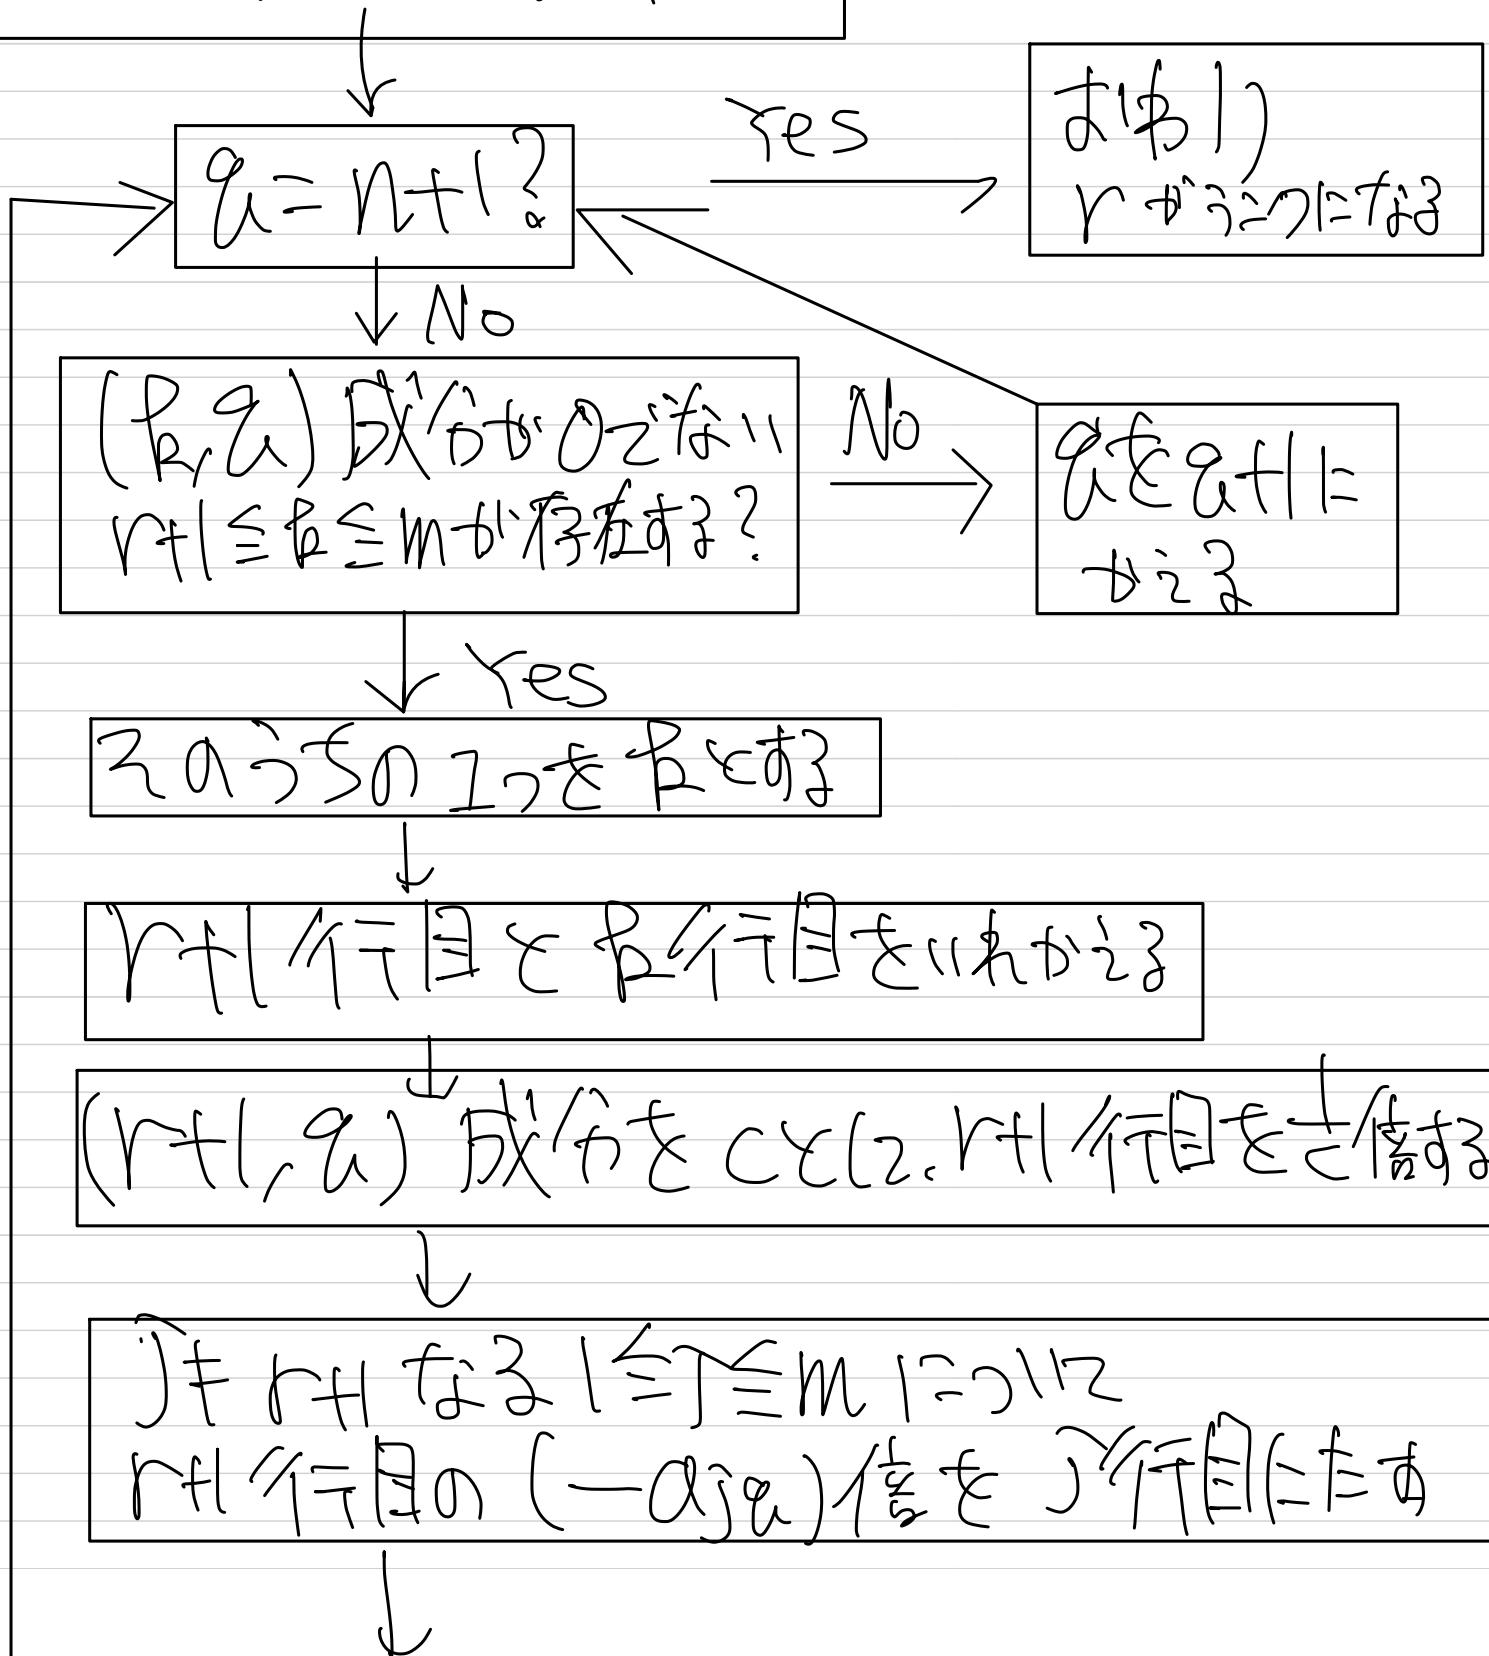 q=n+1?
Yes
おわり
rがランクになる
No
(p,q)成分が0でない
r+1≦p≦mが存在する?
No
qをq+1に
かえる
Yes
そのうちの1つをpとする
r+1行目とp行目をいれかえる
(r+1,q)成分をcとして、r+1行目を1/c倍する
j≠r+1なる1≦j≦mについて
r+1行目の(-ajq)倍をj行目にたす